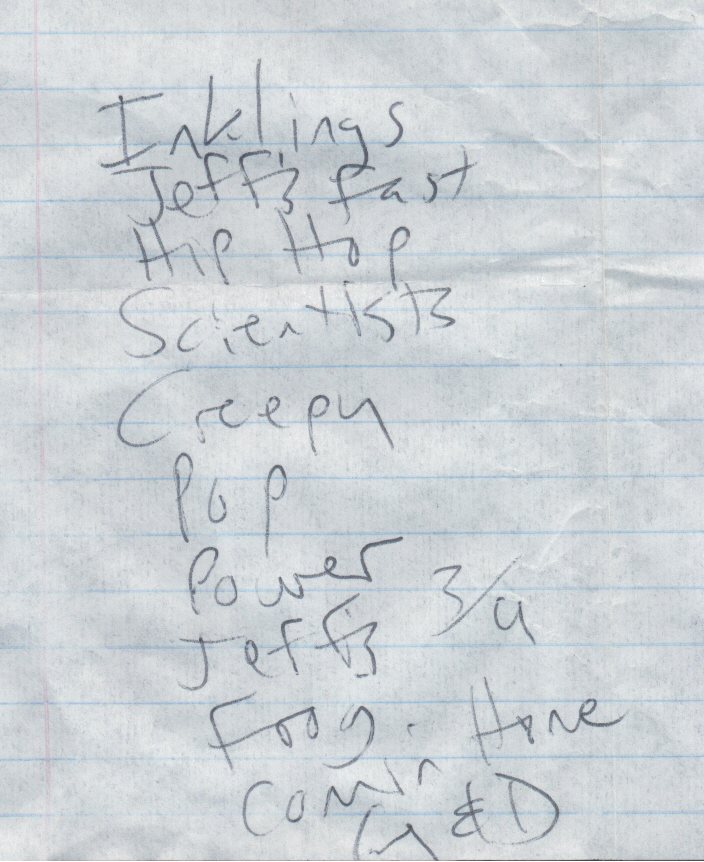 Inklings
Jeff's fast
Hip Hop
Scientists
Creepy
Pop
Power
Jeff's 3/4
Froog.
Comin Home
G & D